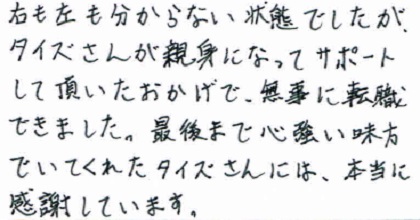 右も左も分からない状態でしたが、
タイズさんが親身になってサポート
して頂いたおかげで、無事に転職
できました。最後まで心強い味方
でいてくれたタイズさんには、本当に
感謝しています。